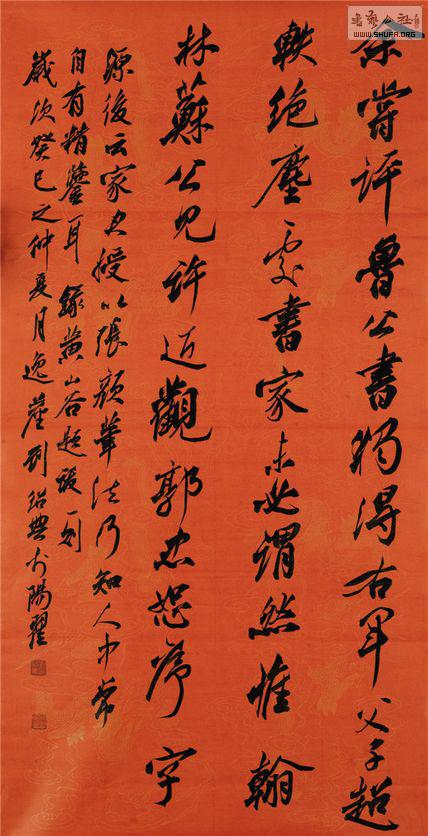 余嘗評魯公書獨得右軍父子超
軼絕塵處書家未必謂然惟翰
林蘇公見許近觀郭忠恕序字
源後云家君授以張顏筆法乃知人中常
自有精鑒耳 錄黃山谷題跋一則
歲次癸巳之仲夏月逸產劉紹典於陽翟
書藝公社
WWW.SHUFA.ORG